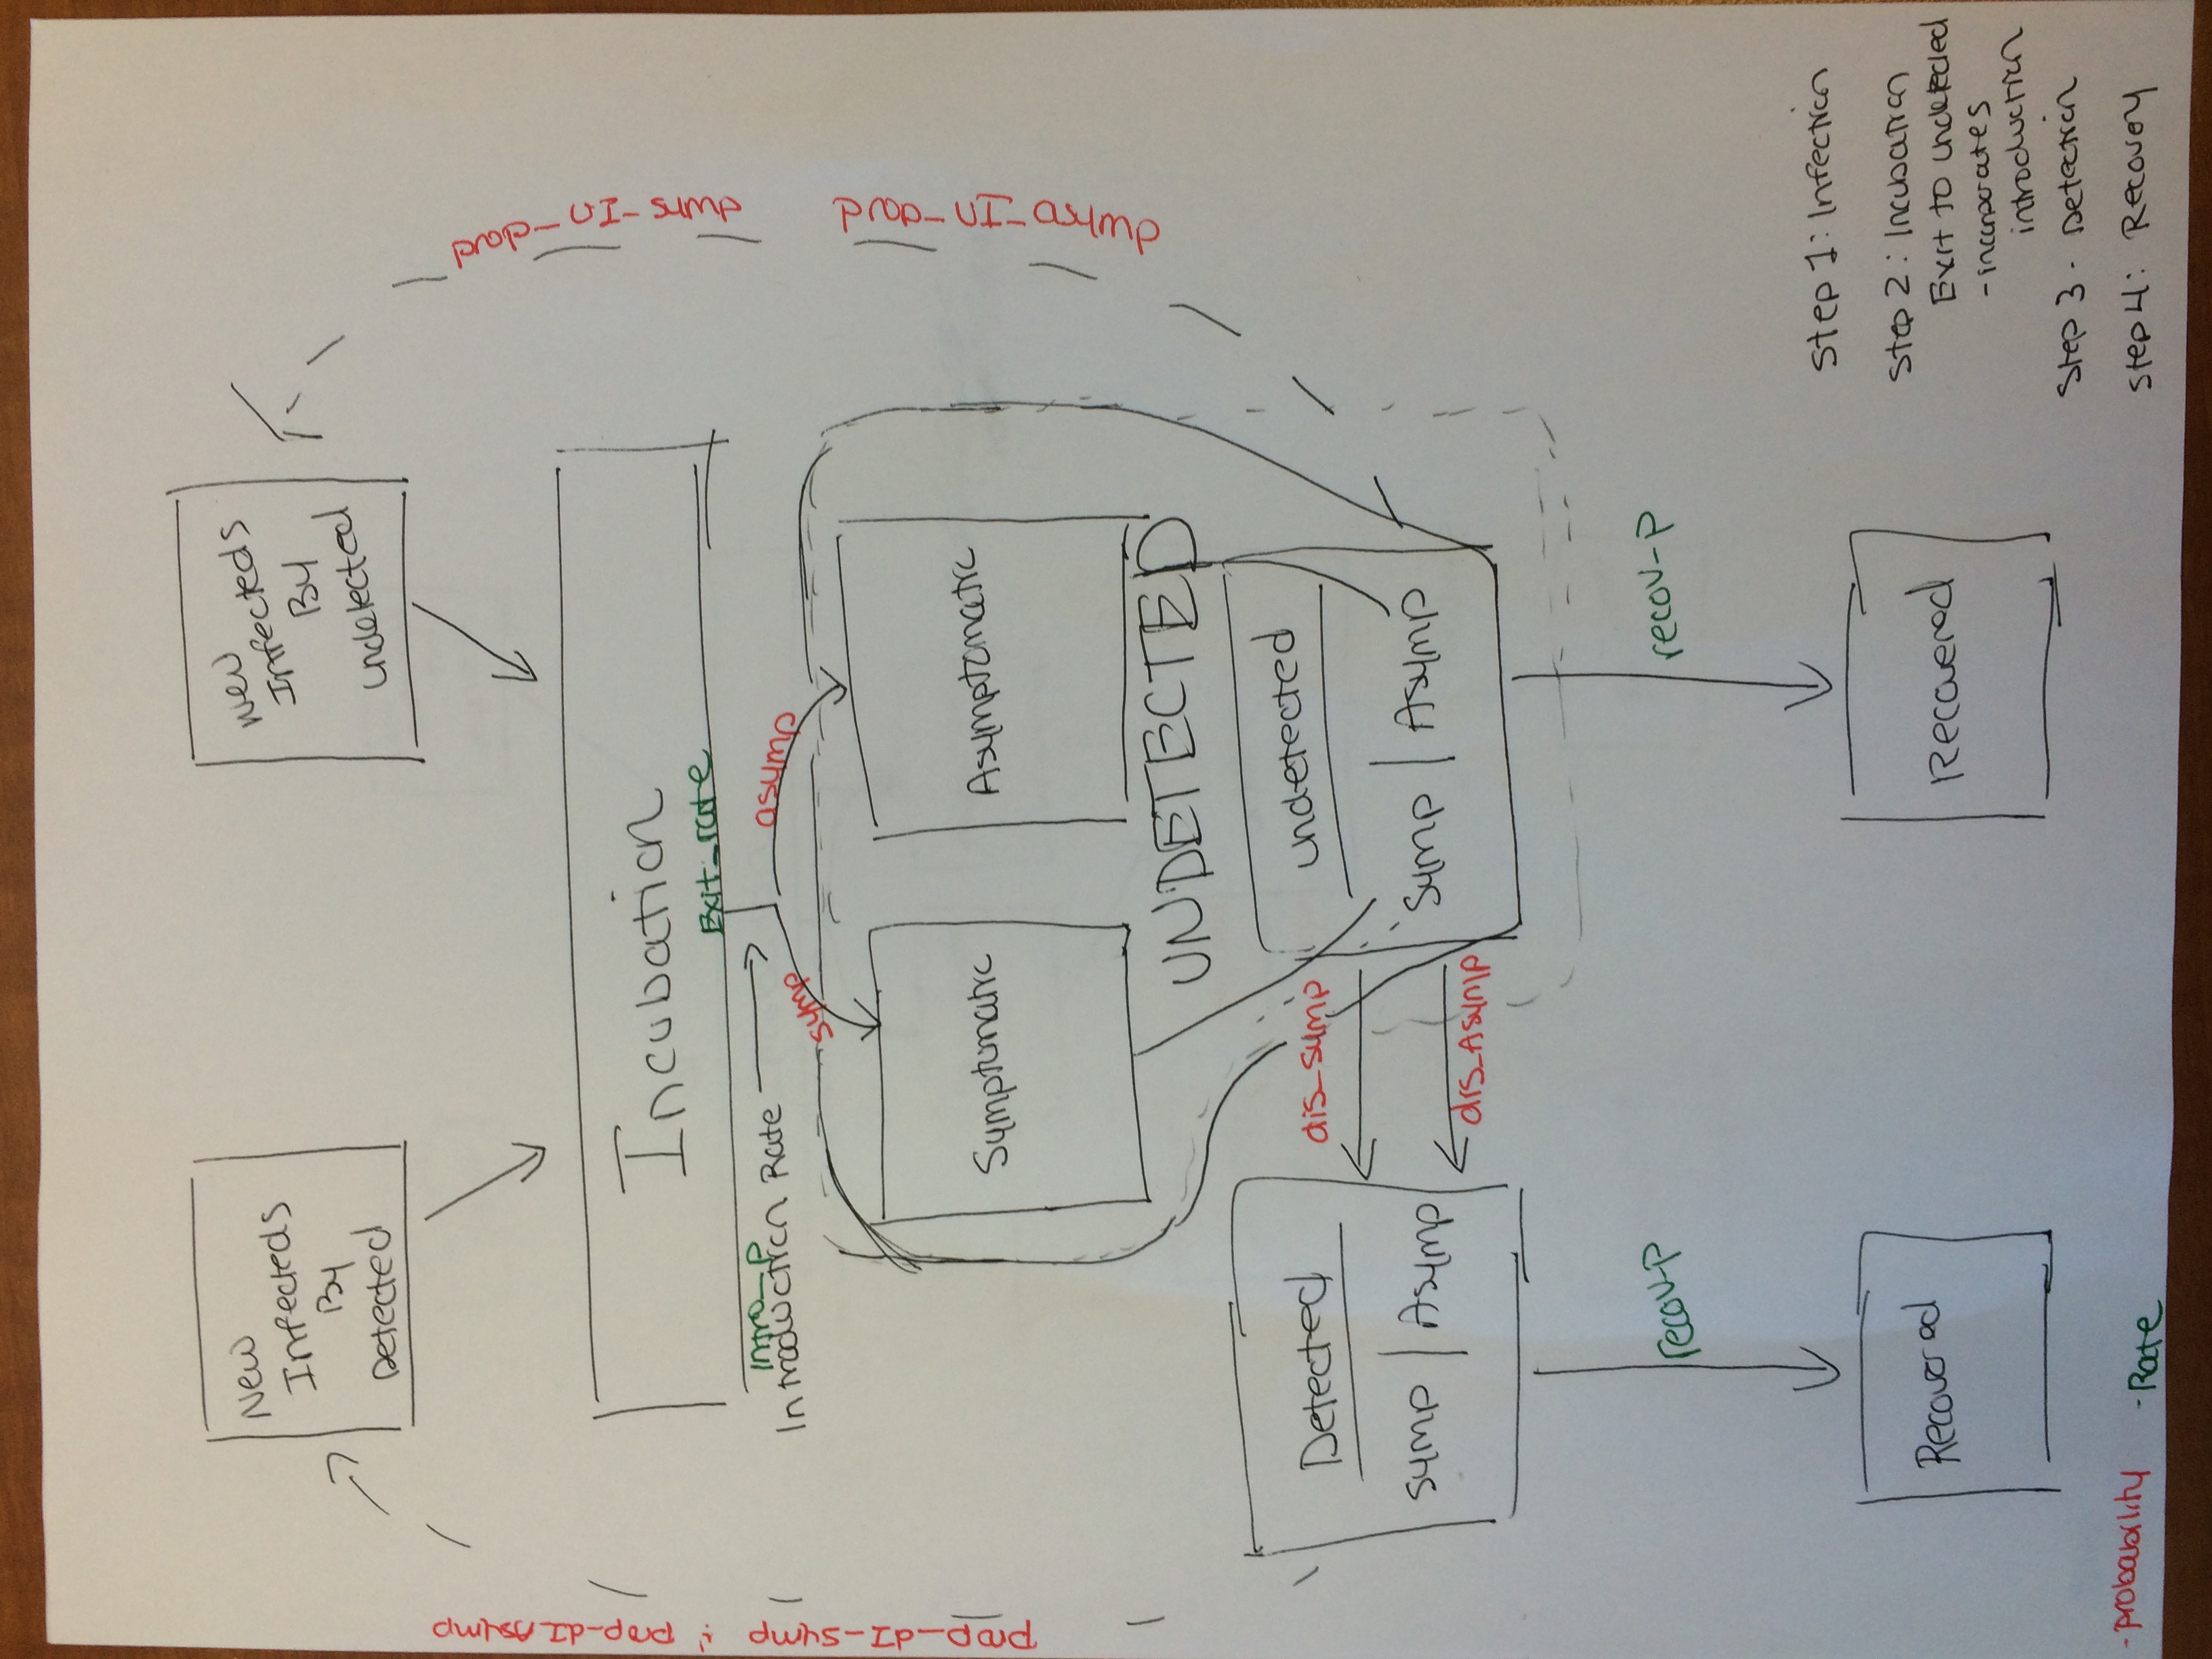 New
Infecteds
By
Detected
New
Infecteds
By
undetected
prop_dI_symp & prop_dI_Asymp
prop_uI_symp
prop_uI_asymp
Incubation
Exit_rate
Intro_p
Introduction Rate
symp
asymp
Symptomatic
Asymptomatic
UNDETECTED
Detected
symp | Asymp
dis_symp
dis_Asymp
undetected
symp | Asymp
recov-p
recov-p
Recovered
Recovered
Step 1: Infection
Step 2: Incubation
Exit to undetected
- incorporates
introduction
Step 3 - Detection
Step 4: Recovery
- probability
- Rate